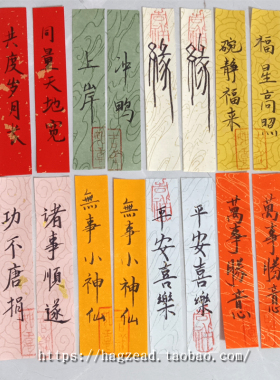 共度岁月长
同量天地宽
上岸
冲鸭
緣
緣
碗静福来
福星高照
功不唐捐
诸事順遂
無事小神仙
無事小神仙
平安喜樂
平安喜樂
萬事勝意
萬事勝意
https://hagzead.taobao.com/